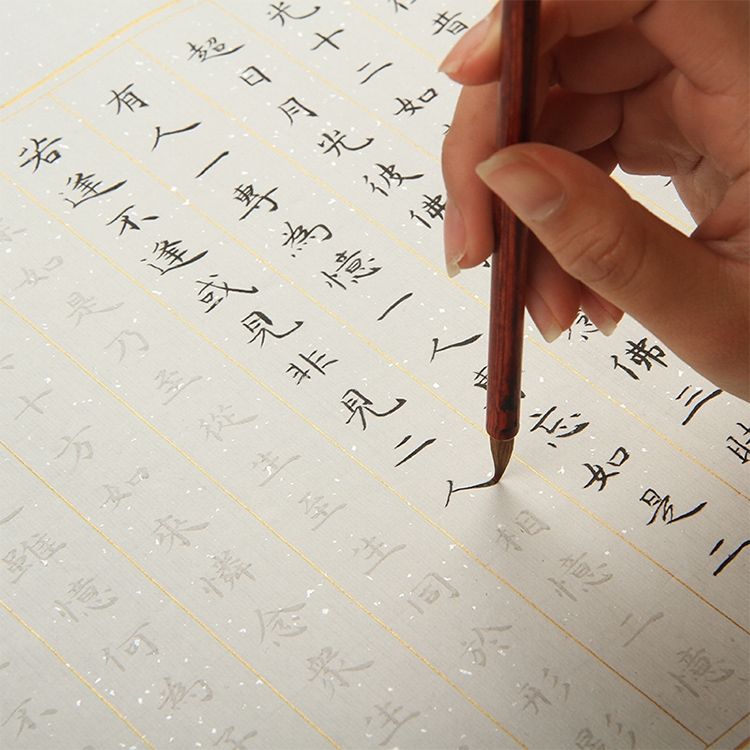 昔
光十二如
超日月光彼佛念佛三
有人一專為憶一人專忘如是二
若逢不逢或見非見二人相憶二憶
如是乃至從生至生同於形影
十方如來憐念眾生
雖憶何為子